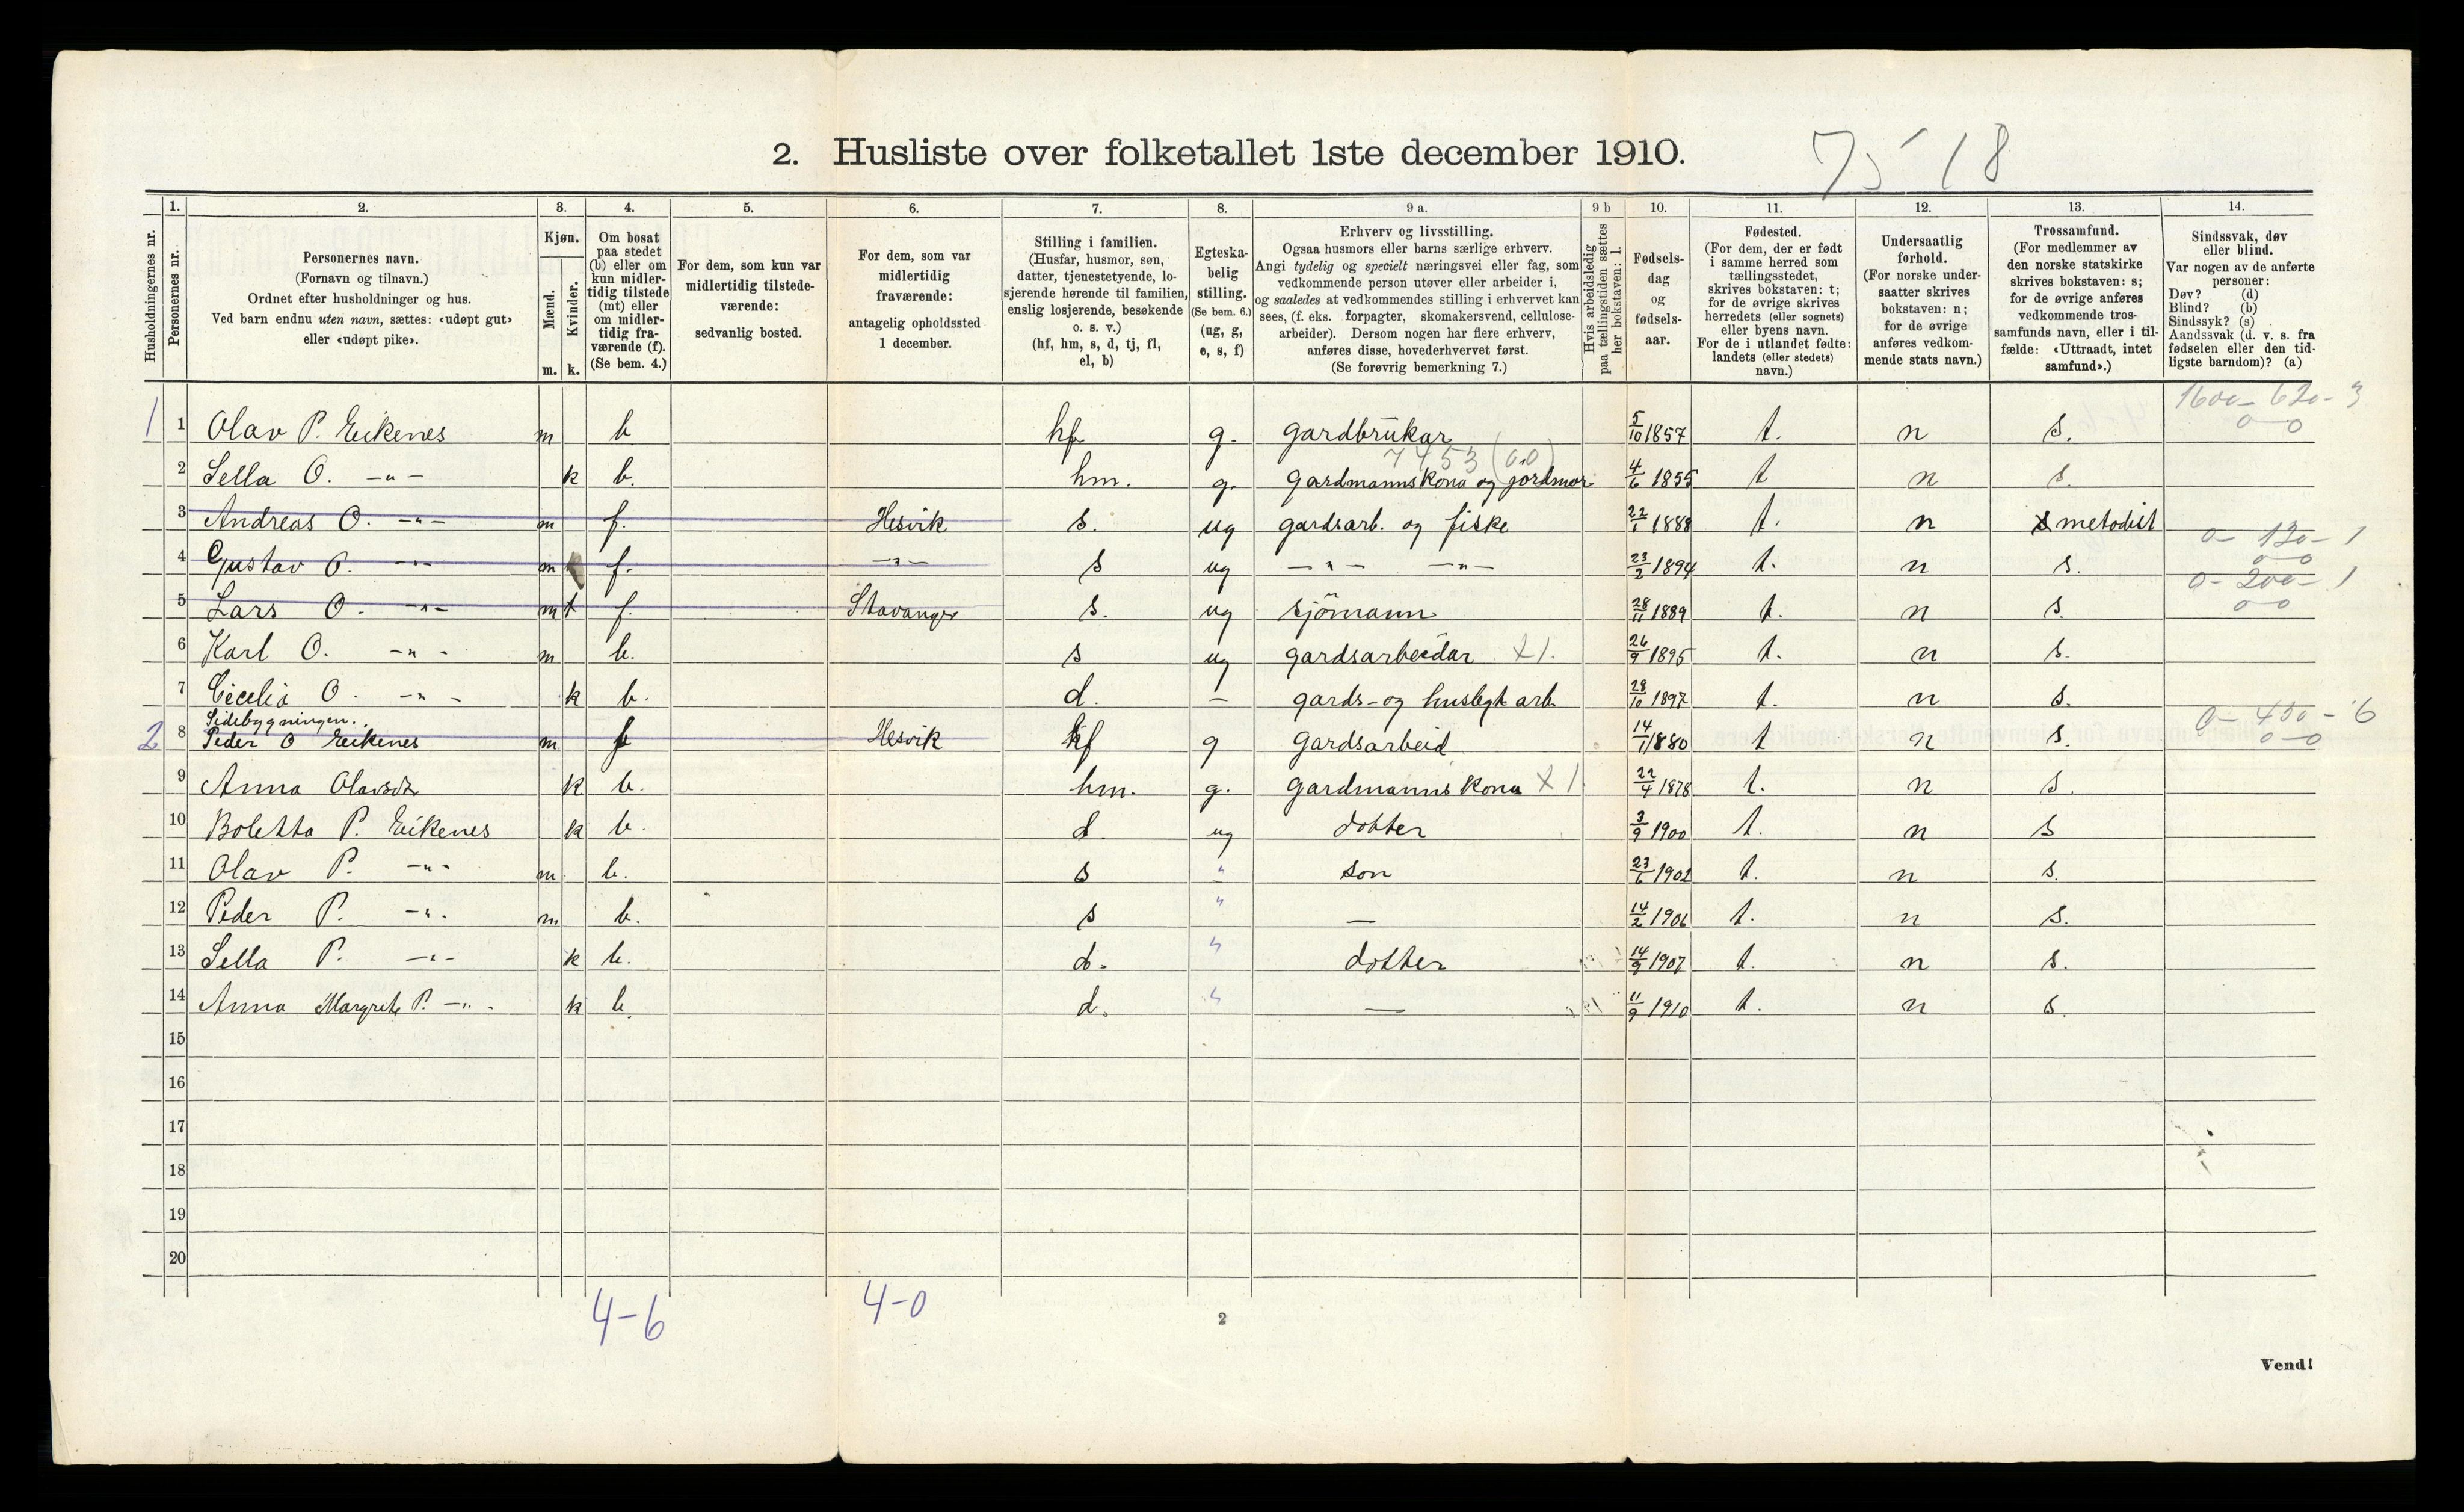 2. Husliste over folketallet 1ste december 1910.
75 18
Husholdningernes nr.
1. Personernes nr.
2. Personernes navn. (Fornavn og tilnavn.) Ordnet efter husholdninger og hus. Ved barn endnu uten navn, sættes: «udøpt gut» eller «udøpt pike».
3. Kjøn. Mænd. m. Kvinder. k.
4. Om bosat paa stedet (b) eller om kun midlertidig tilstede (mt) eller om midlertidig fraværende (f). (Se bem. 4.)
5. For dem, som kun var midlertidig tilstedeværende: sedvanlig bosted.
6. For dem, som var midlertidig fraværende: antagelig opholdssted 1 december.
7. Stilling i familien. (Husfar, husmor, søn, datter, tjenestetyende, losjerende hørende til familien, enslig losjerende, besøkende o. s. v.) (hf, hm, s, d, tj, fl, el, b)
8. Egteskabelig stilling. (Se bem. 6.) (ug, g, e, s, f)
9 a. Erhverv og livsstilling. Ogsaa husmors eller barns særlige erhverv. Angi tydelig og specielt næringsvei eller fag, som vedkommende person utøver eller arbeider i, og saaledes at vedkommendes stilling i erhvervet kan sees, (f. eks. forpagter, skomakersvend, cellulosearbeider). Dersom nogen har flere erhverv, anføres disse, hovederhvervet først. (Se forøvrig bemerkning 7.)
9 b Hvis arbeidsledig paa tællingstiden sættes her bokstaven: l.
10. Fødselsdag og fødselsaar.
11. Fødested. (For dem, der er født i samme herred som tællingsstedet, skrives bokstaven: t; for de øvrige skrives herredets (eller sognets) eller byens navn. For de i utlandet fødte: landets (eller stedets) navn.)
12. Undersaatlig forhold. (For norske undersaatter skrives bokstaven: n; for de øvrige anføres vedkommende stats navn.)
13. Trossamfund. (For medlemmer av den norske statskirke skrives bokstaven: s; for de øvrige anføres vedkommende trossamfunds navn, eller i tilfælde: «Uttraadt, intet samfund».)
14. Sindssvak, døv eller blind. Var nogen av de anførte personer: Døv? (d) Blind? (b) Sindssyk? (s) Aandssvak (d. v. s. fra fødselen eller den tidligste barndom)? (a)
1600 - 620 - 3
0 - 0
1 1 Olav P. Eikenes m b hf g. gardbrukar 5/10 1857 t. n s.
7453 (0.0)
2 Sella O. -"- k b. hm. g. gardmannskona og jordmor 4/6 1855 t n s.
3 Andreas O. -"- m f. Hesvik s. ug gardsarb. og fiske 22/1 1888 t. n s metodist
0 - 120 - 1
0 - 0
4 Gustav O. -"- m f. -"- s ug -"- -"- 23/2 1894 t. n s.
0 - 200 - 1
0 - 0
5 Lars O. -"- m f. Stavanger s. ug sjömann 28/11 1889 t. n s.
6 Karl O. -"- m b. s ug gardsarbeidar X 1. 26/9 1895 t. n s.
7 Cecelia O. -"- k b. d. - gards- og huslegt arb. 28/10 1897 t. n s.
Sidebygningen.
0 - 450 - 6
0 - 0
2 8 Peder O Eikenes m f Hesvik hf g gardsarbeid 14/1 1880 t n s.
9 Anna Olavsdtr k b. hm. g. gardmannskona X 1 22/4 1878 t. n s.
10 Boletta P. Eikenes k b. d. ug dotter 3/9 1900 t. n s
11 Olav P. -"- m b. s " son 23/6 1902 t. n s.
12 Peder P. -"- m b. s " — 14/2 1906 t. n s.
13 Sella P. -"- k b. d. " dotter 14/9 1907 t. n s.
14 Anna Margrete P. -"- k b d. " — 11/9 1910 t. n s.
15
16
17
18
19
20
4-6 4-0
2
Vend!